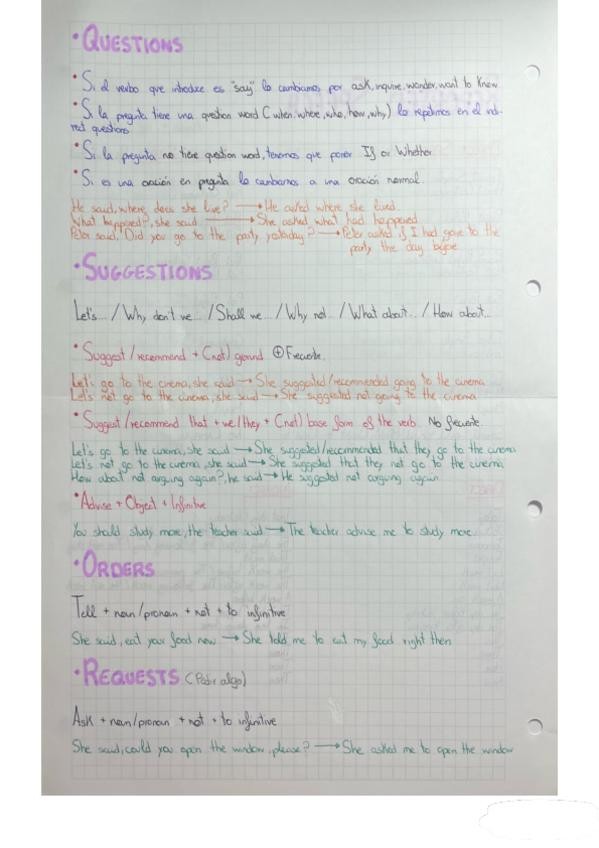 • QUESTIONS
• Si el verbo que introduce es "say" lo cambiamos por ask, inquire, wonder, want to know
• Si la pregunta tiene una question word (when, where, who, how, why) lo repetimos en el indi-
rect questions
• Si la pregunta no tiene question word, tenemos que poner If or Whether.
• Si es una oración en pregunta lo cambiamos a una oración normal.
He said, where does she live? → He asked where she lived.
What happened?, she said → She asked what had happened
Peter said, "Did you go to the party yesterday? → Peter asked if I had gone to the
party the day before.
• SUGGESTIONS
Let's... / Why don't we... / Shall we... / Why not... / What about... / How about...
• Suggest / recommend + (not) gerund ⊕ Frecuente.
Let's go to the cinema, she said → She suggested/recommended going to the cinema
Let's not go to the cinema, she said → She suggested not going to the cinema
• Suggest / recommend that + we/they + (not) base form of the verb. No frecuente.
Let's go to the cinema, she said → She suggested/recommended that they go to the cinema
Let's not go to the cinema, she said → She suggested that they not go to the cinema
How about not arguing again?, he said → He suggested not arguing again
• Advise + Object + Infinitive
You should study more, the teacher said → The teacher advise me to study more.
• ORDERS
Tell + noun/pronoun + not + to infinitive
She said, eat your food now → She told me to eat my food right then
• REQUESTS (Pedir algo)
Ask + noun/pronoun + not + to infinitive
She said, could you open the window, please? → She asked me to open the window